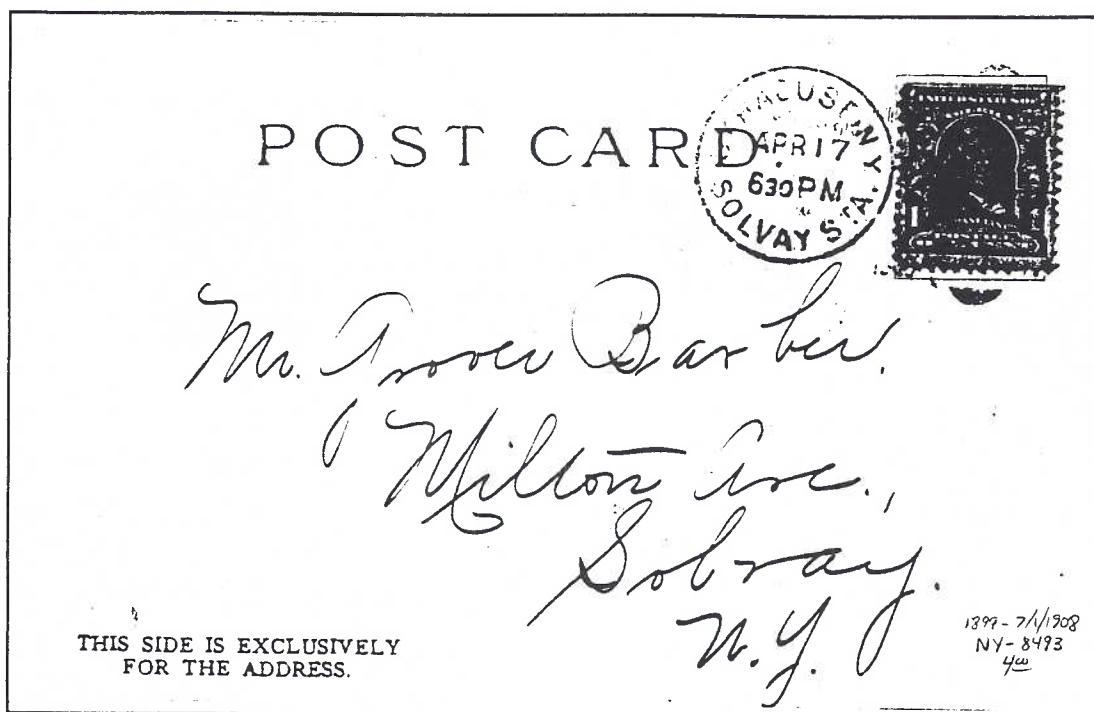 POST CARD
SYRACUSE, N.Y.
APR 17
630 PM
SOLVAY STA.
Mr. Grover Barber.
Milton Ave.,
Solvay.
N.Y.
THIS SIDE IS EXCLUSIVELY
FOR THE ADDRESS.
1899 - 7/1/1908
NY - 8493
400